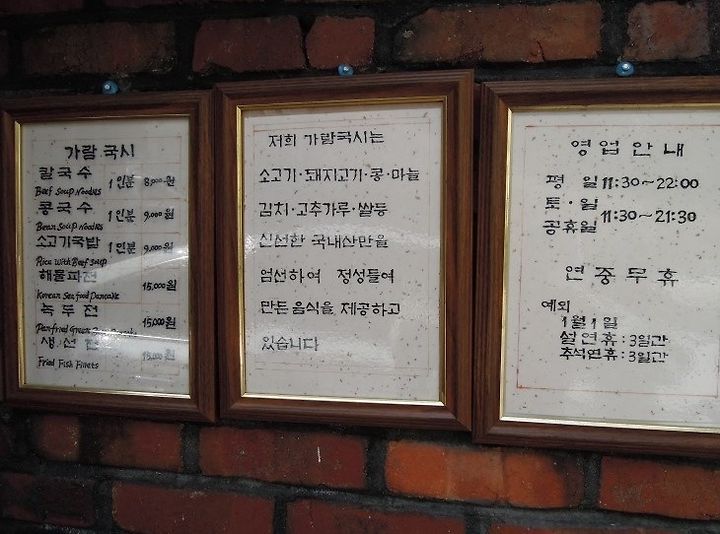 가람 국시
칼국수 1인분 8,000원
Beef Soup Noodles
콩국수 1인분 9,000원
Bean Soup Noodles
소고기국밥 1인분 9,000원
Rice With Beef Soup
해물파전 15,000원
Korean Seafood Pancake
녹두전 15,000원
Pan-fried Green
생선전 15,000원
Fried Fish Fillets
저희 가람국시는
소고기·돼지고기·콩·마늘
김치·고추가루·쌀등
신선한 국내산만을
엄선하여 정성들여
만든음식을 제공하고
있습니다
영업안내
평 일 11:30~22:00
토·일
공휴일 11:30~21:30
연중무휴
예외
1월1일
설연휴:3일간
추석연휴:3일간